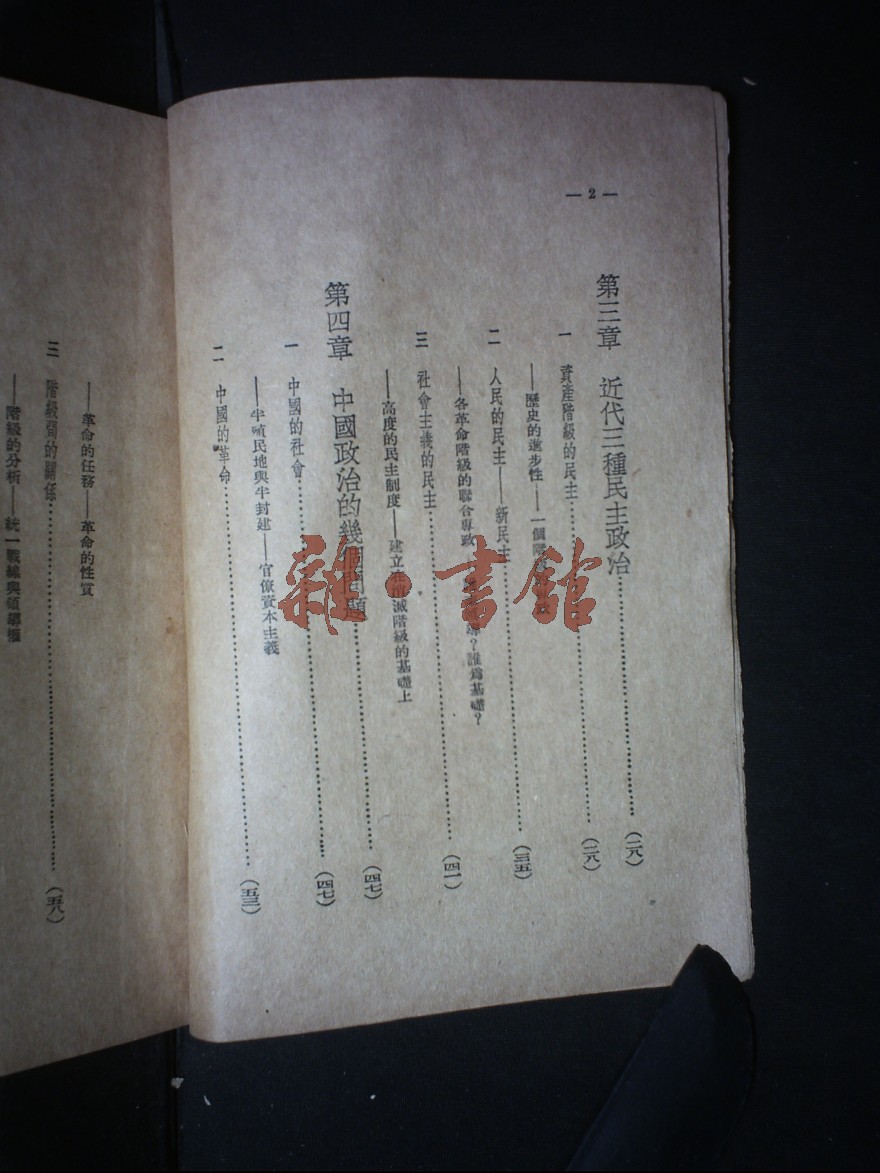 — 2 —
第三章　近代三種民主政治……（二八）
一　資產階級的民主……（二八）
——歷史的進步性——一個階
二　人民的民主——新民主……（三五）
——各革命階級的聯合專政——？誰爲基礎？
三　社會主義的民主……（四一）
——高度的民主制度——建立在消滅階級的基礎上
第四章　中國政治的幾個問題……（四七）
一　中國的社會……（四七）
——半殖民地與半封建——官僚資本主義
二　中國的革命……（五三）
——革命的任務——革命的性質
三　階級間的關係……（五八）
——階級的分析——統一戰線與領導權
雜·書館